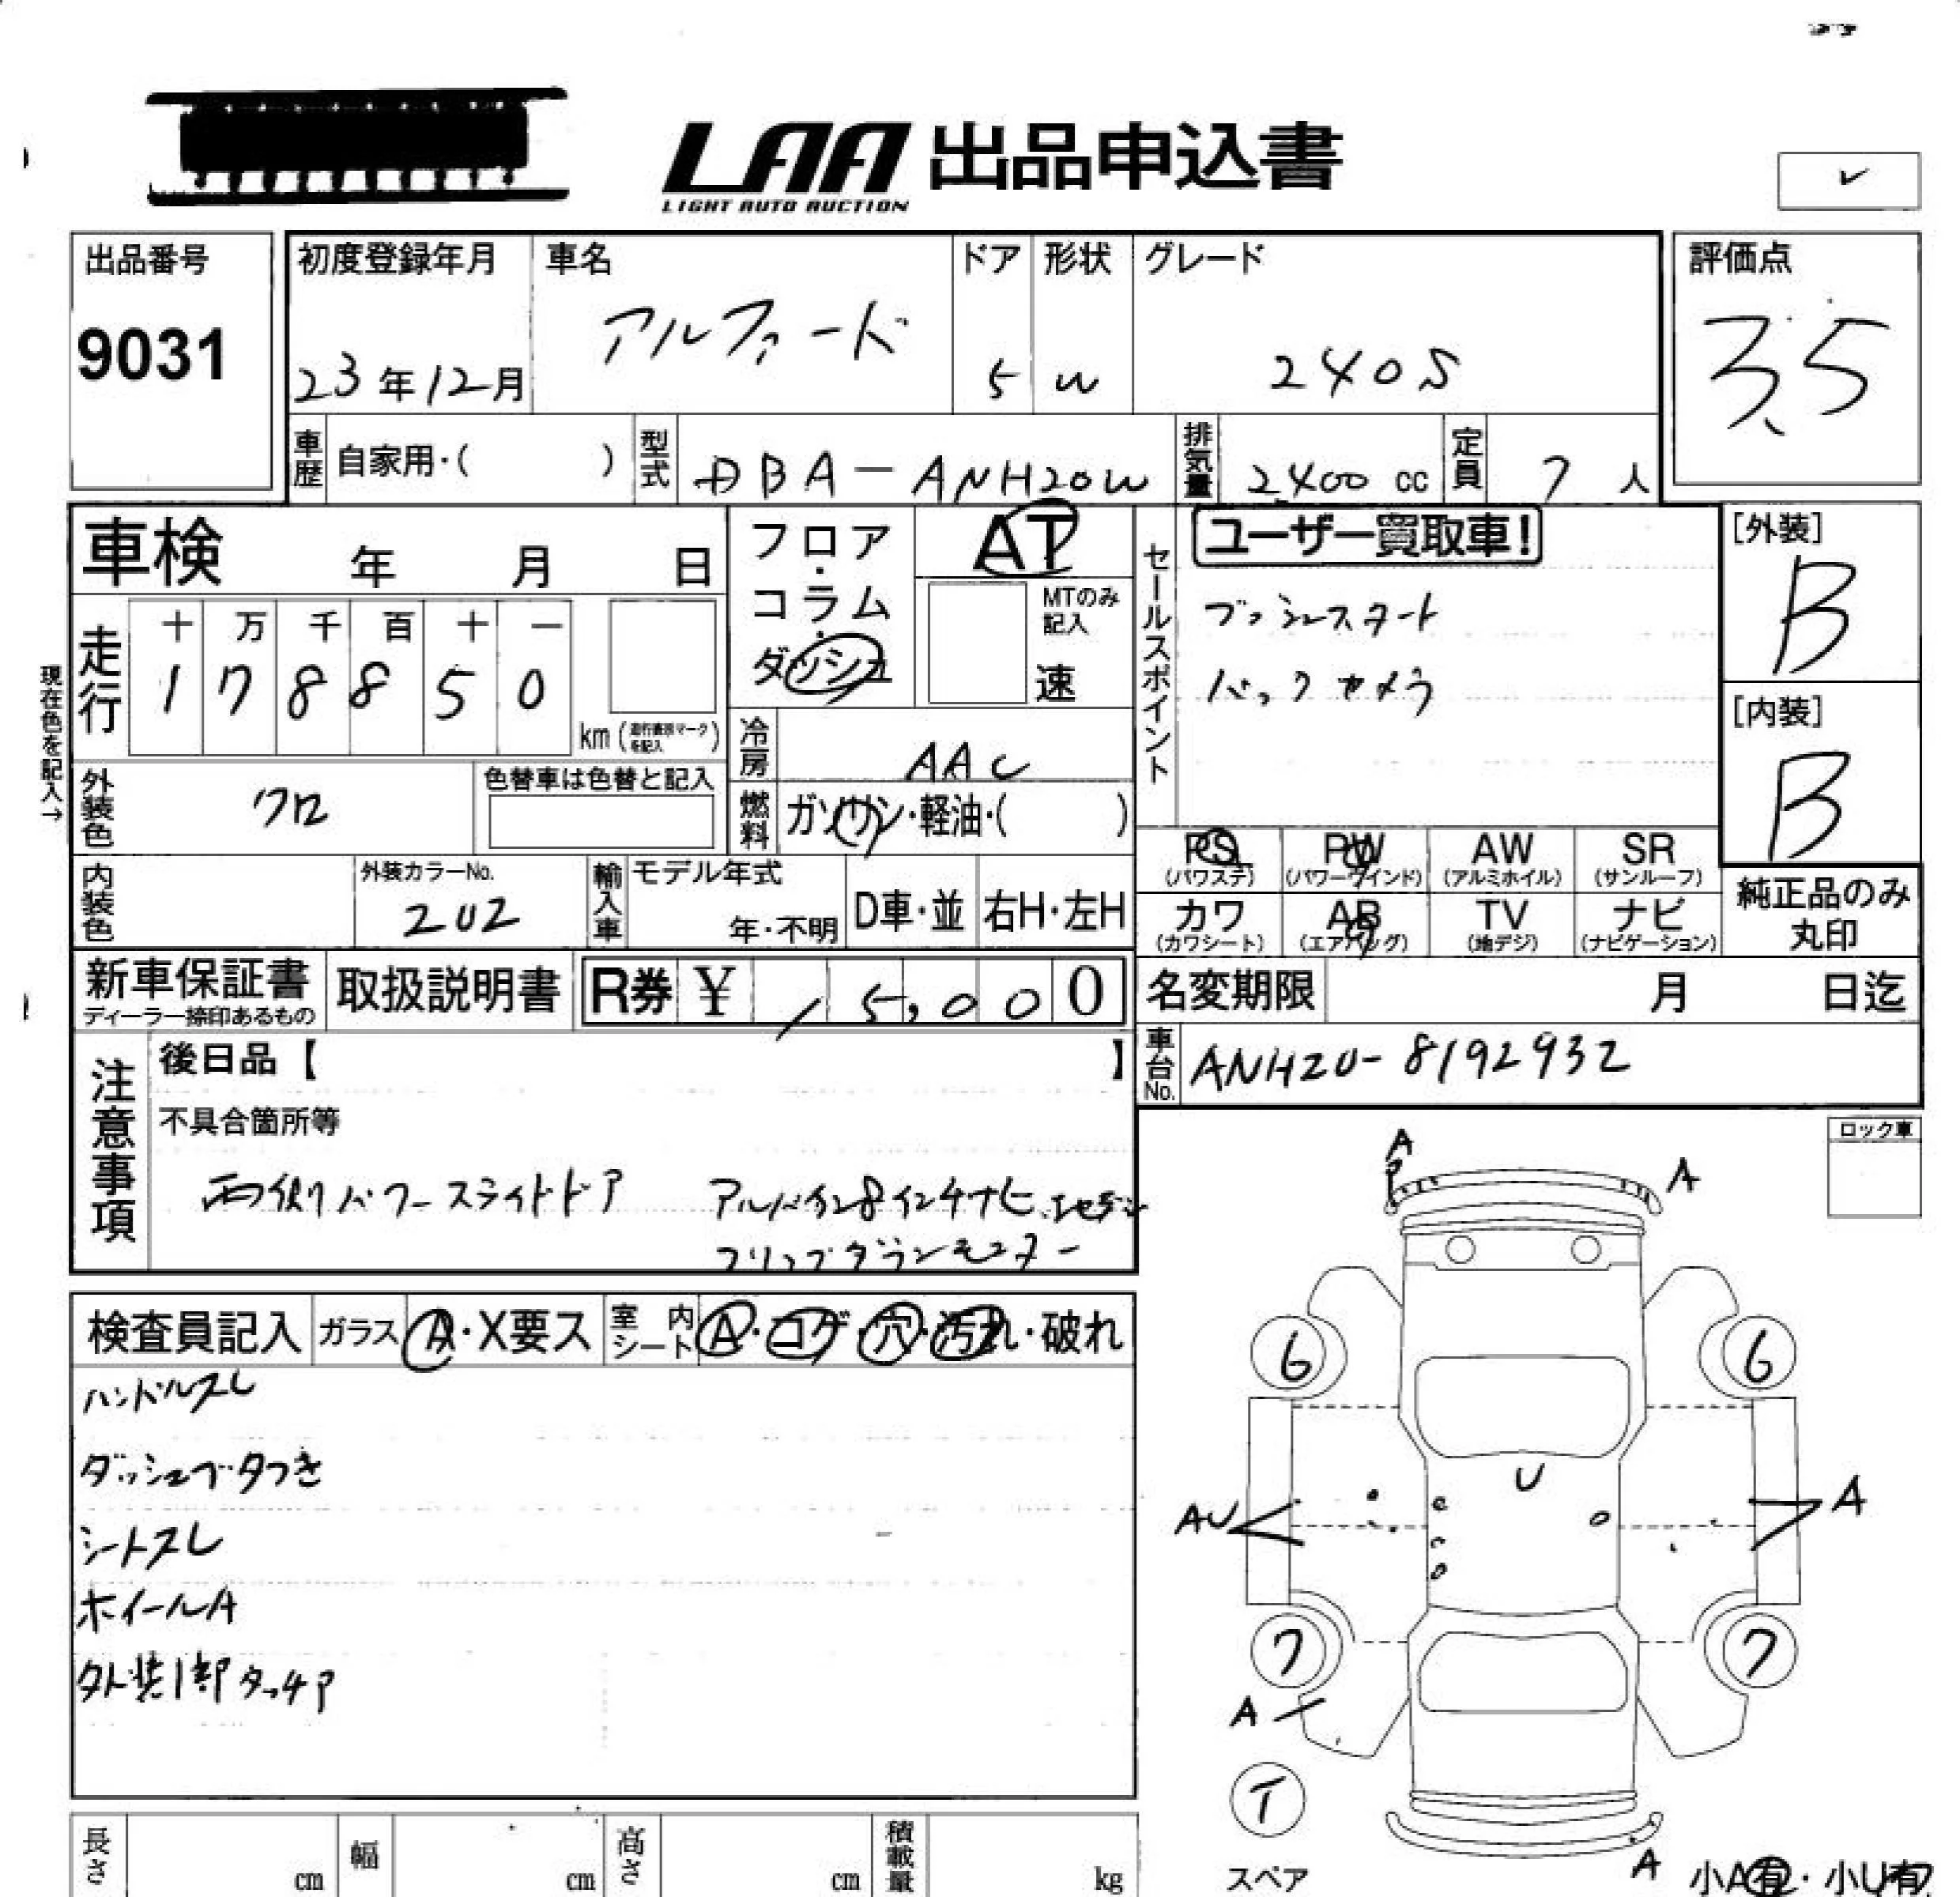 LAA 出品申込書
LIGHT AUTO AUCTION
出品番号
9031
初度登録年月
23年12月
車名
アルファード
ドア
5
形状
W
グレード
240S
評価点
3.5
車歴 自家用・( )
型式 DBA-ANH20W
排気量 2400 cc
定員 7 人
車検 年 月 日
フロア・コラム・ダッシュ
AT
MTのみ記入
速
セールスポイント
ユーザー買取車!
プッシュスタート
バックカメラ
[外装]
B
[内装]
B
現在色を記入→
走行
十 万 千 百 十 一
1 7 8 8 5 0
km (走行機器マークを記入)
冷房 AAC
燃料 ガソリン・軽油・( )
外装色 クロ
色替車は色替と記入
内装色
外装カラーNo.
202
輸入車
モデル年式
年・不明
D車・並
右H・左H
PS (パワステ)
PW (パワーウインド)
AW (アルミホイル)
SR (サンルーフ)
カワ (カワシート)
AB (エアバッグ)
TV (地デジ)
ナビ (ナビゲーション)
純正品のみ丸印
新車保証書
ディーラー捺印あるもの
取扱説明書
R券 ¥ 15,000
名変期限 月 日迄
車台No. ANH20-8192932
注意事項
後日品【 】
不具合箇所等
両側パワースライドドア
アルパイン8インチナビ、地デジ
フリップダウンモニター
ロック車
検査員記入
ガラス A・X要ス
室内シート A・コゲ・穴・汚れ・破れ
ハンドルスレ
ダッシュベタつき
シートスレ
ホイールA
外装1部タッチP
A
P
A
6
6
U
AU
A
7
7
A
T
スペア
A
小A有・小U有
長さ cm
幅 cm
高さ cm
積載量 kg